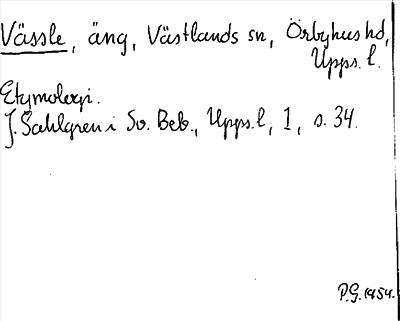 Vässle, äng, Västlands sn, Örbyhus hd,
Upps. l.
Etymologi.
J. Sahlgren i Sv. Beb., Upps. l, 1, s. 34.
P.G. 1954.